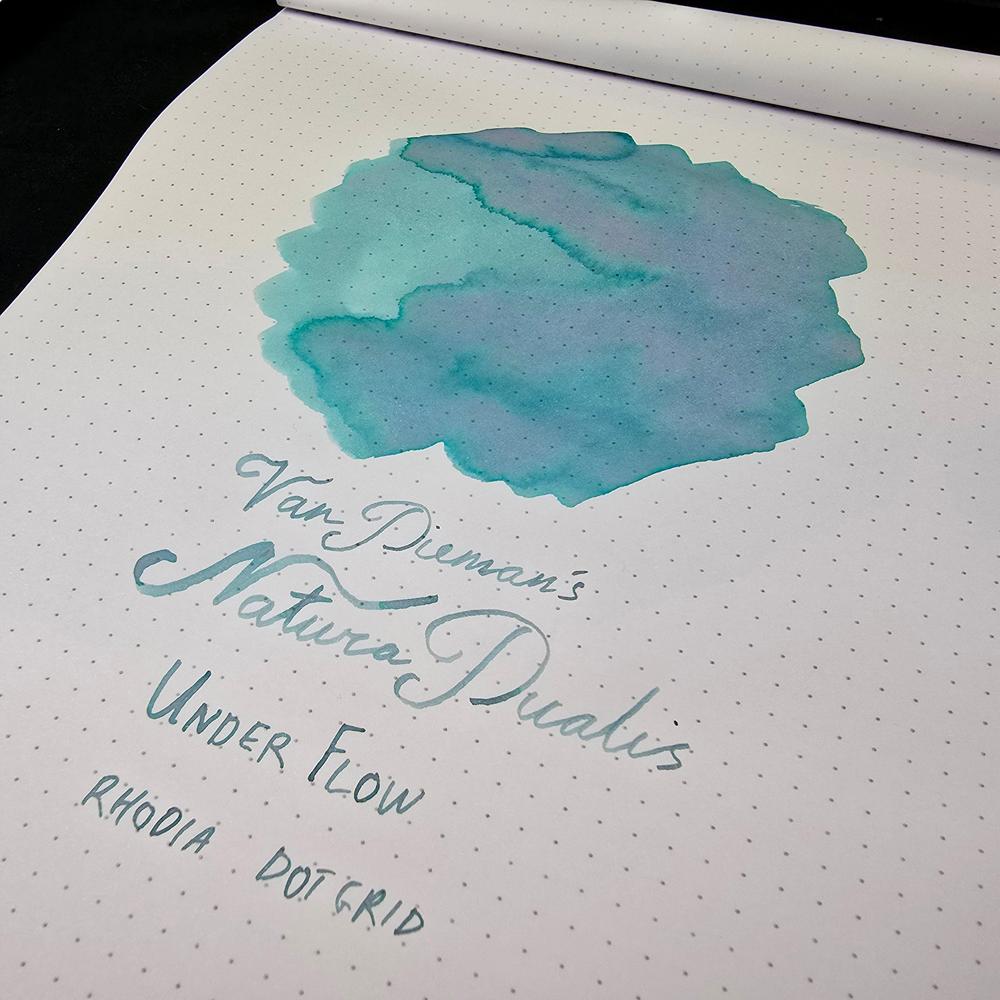 Van Dieman's
Natura Dualis
UNDER FLOW
RHODIA DOT GRID